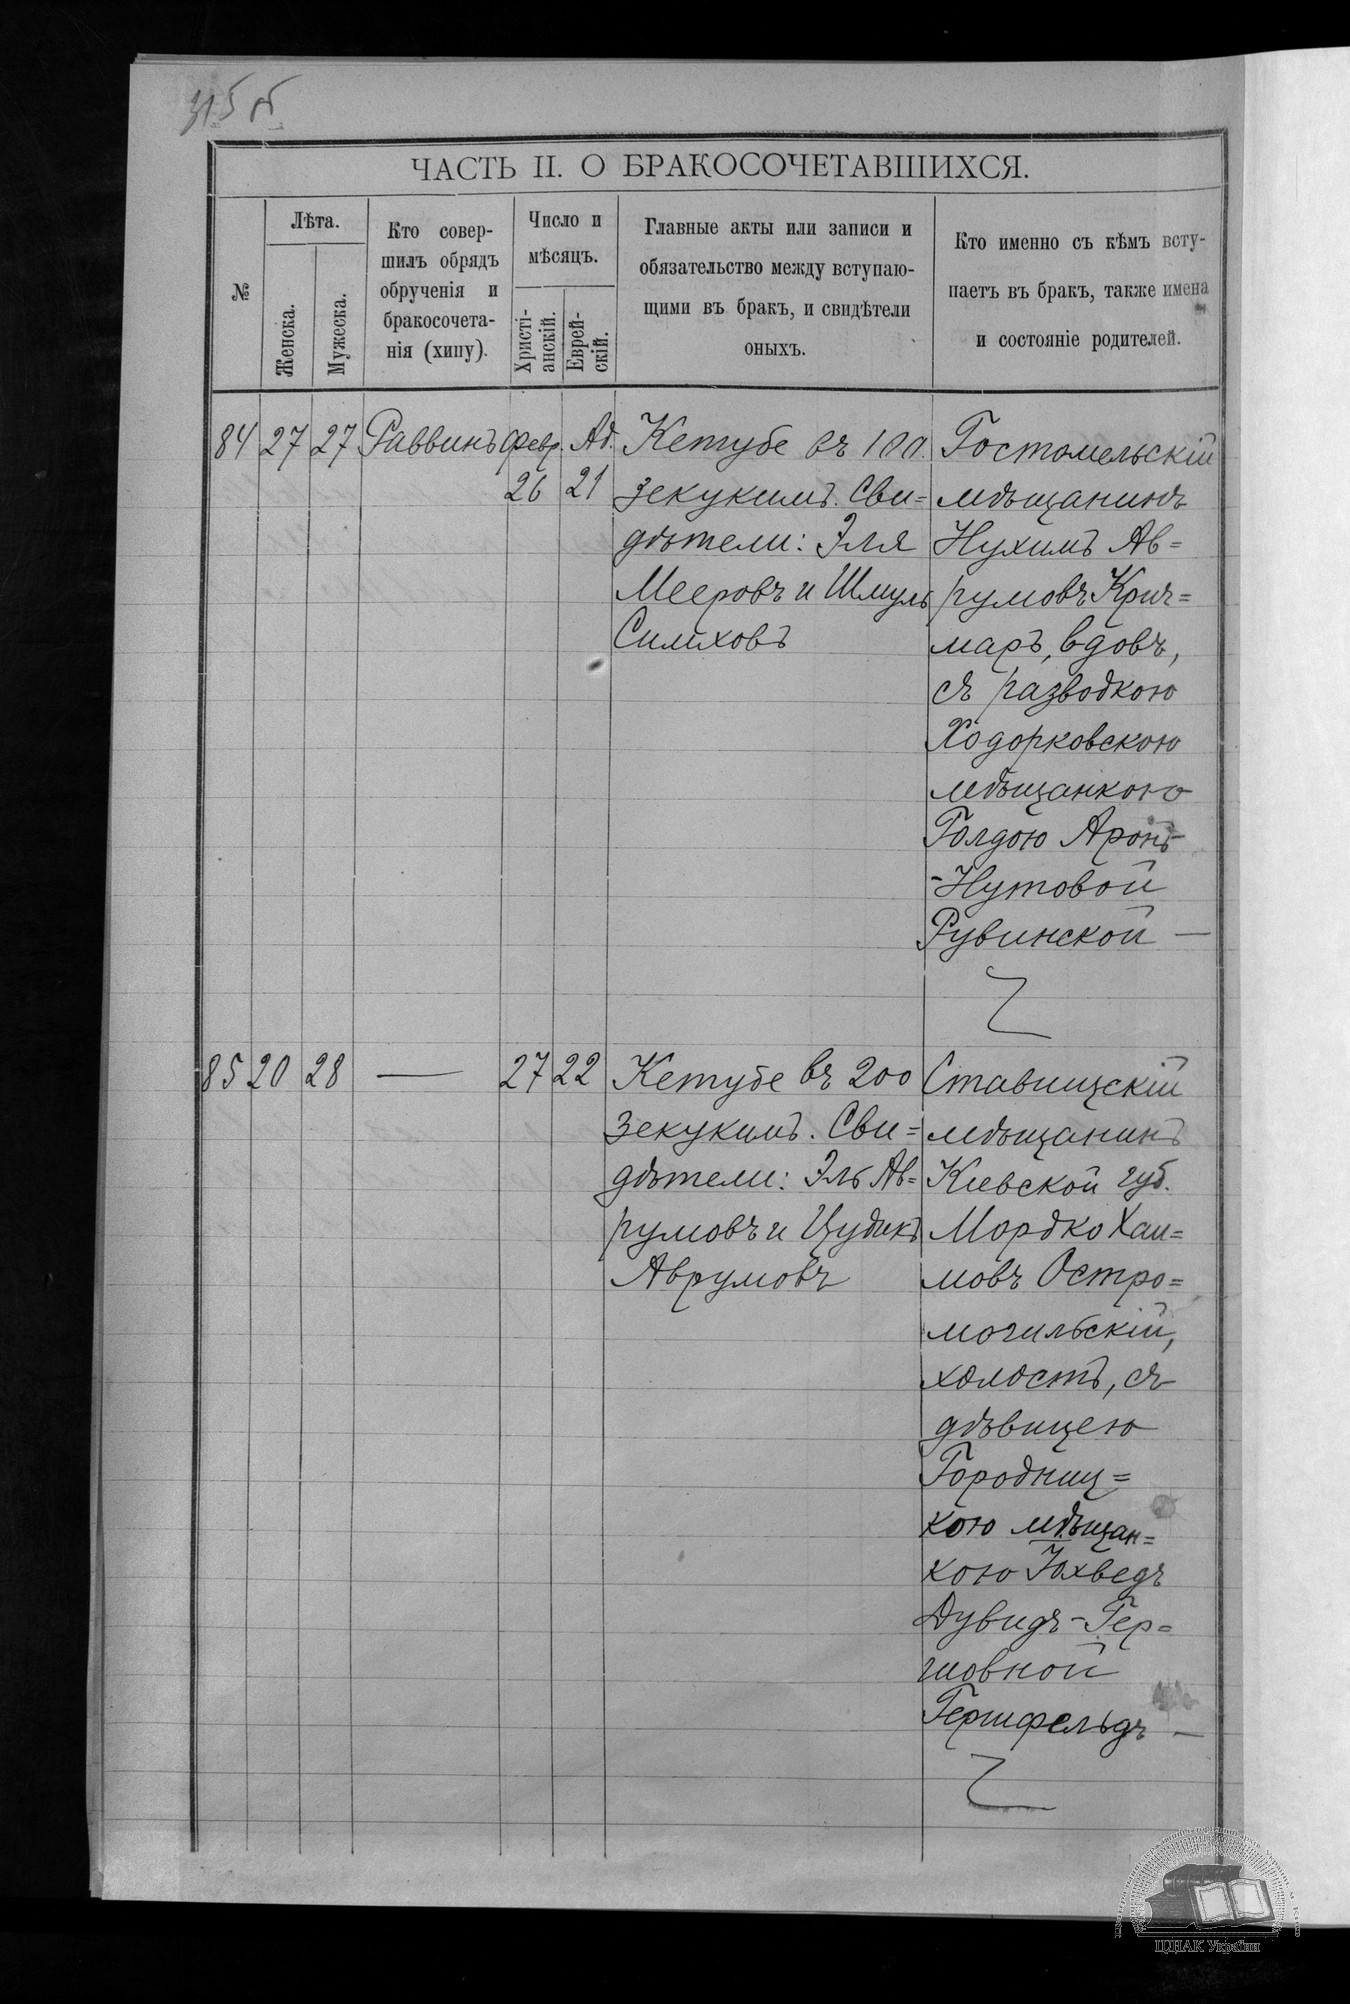 315 об
ЧАСТЬ II. О БРАКОСОЧЕТАВШИХСЯ.
№
Лѣта.
Женска.
Мужеска.
Кто совер-
шилъ обрядъ
обрученія и
бракосочета-
нія (хипу).
Число и
мѣсяцъ.
Христі-
анскій.
Еврей-
скій.
Главные акты или записи и
обязательство между вступаю-
щими въ бракъ, и свидѣтели
оныхъ.
Кто именно съ кѣмъ всту-
паетъ въ бракъ, также имена
и состояніе родителей.
84 27 27 Раввинъ Февр. 26 Ад. 21
Кетубе въ 100
зекукимъ. Сви=
дѣтели: Эля
Мееровъ и Шмуль
Симховъ
Гостомельскій
мѣщанинъ
Нухимъ Ав=
румовъ Крич=
маръ, вдовъ,
съ разводкою
Ходорковскою
мѣщанкою
Голдою Аронъ-
-Нутовой
Рувинской —
85 20 28 — 27 22
Кетубе въ 200
зекукимъ. Сви=
дѣтели: Эль Ав=
румовъ и Цудикъ
Аврумовъ
Ставищскій
мѣщанинъ
Кіевской губ.
Мордко Хаи=
мовъ Остро=
могильскій,
холостъ, съ
дѣвицею
Городниц=
кою мѣщан=
кою Юхведъ
Дувидъ-Гер=
шовной
Гершфельдъ —
ЦДІАК України